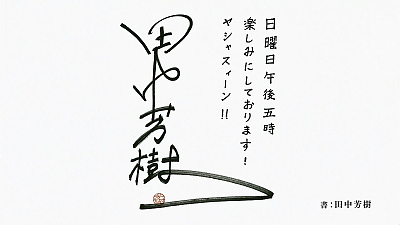 日曜日午後五時
楽しみにしております!
ヤシャスィーン!!
田中芳樹
書:田中芳樹